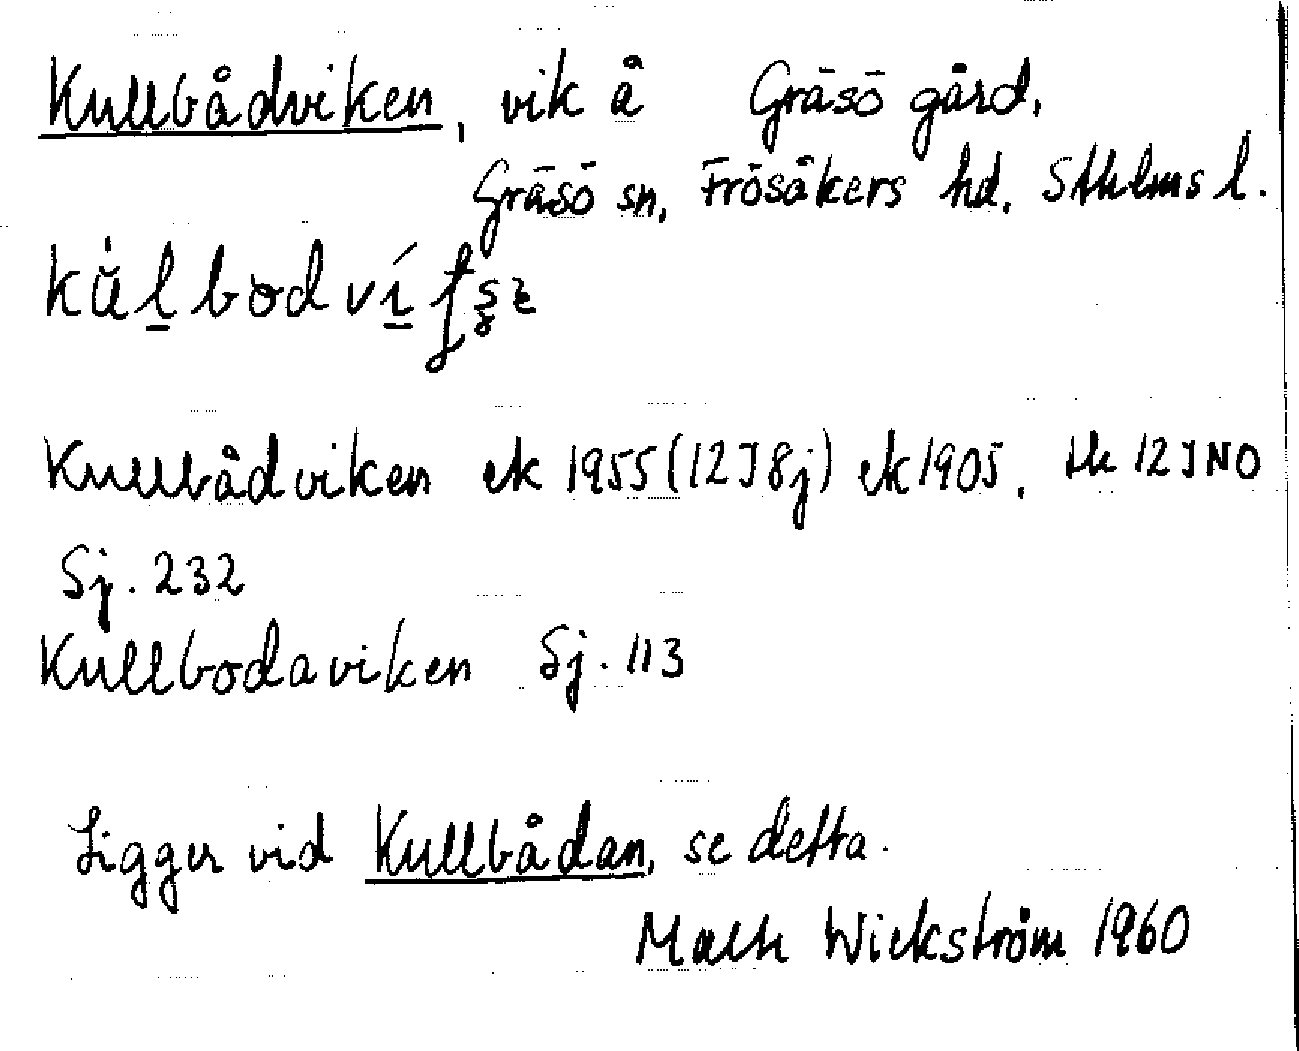 Kullbådviken, vik å Gräsö gård,
Gräsö sn, Frösåkers hd, Sthlms l.
Kullbådviken ek 1955 (12I8j) ek 1905, tk 12INO
Sj. 232
Kullbodaviken Sj. 113
Ligger vid Kullbådan, se detta.
Wickström 1960